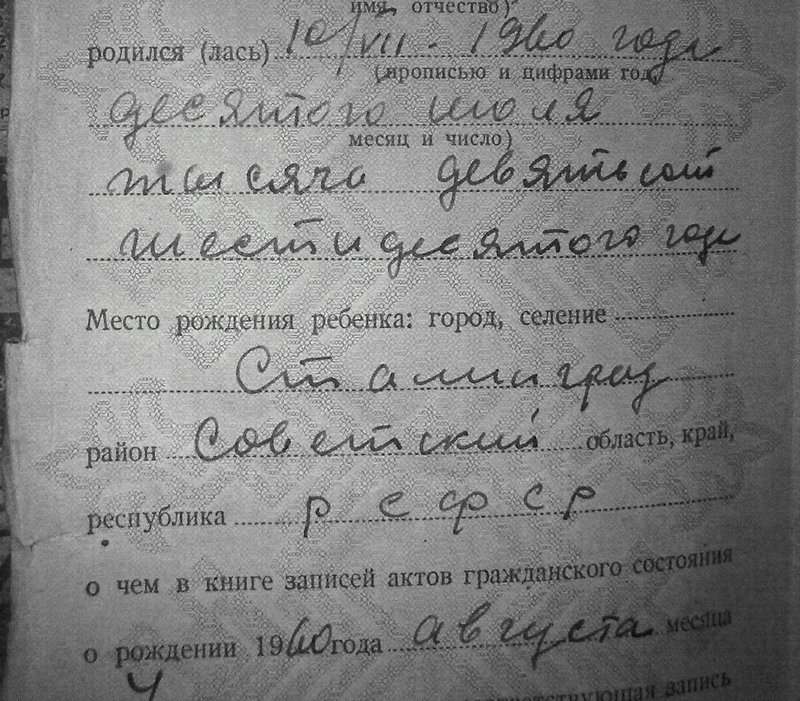 имя, отчество)
родился (лась) 10/VII - 1960 года
(прописью и цифрами год,
десятого июля
месяц и число)
тысяча девятьсот
шестидесятого года
Место рождения ребенка: город, селение
Сталинград
район Советский область, край,
республика РСФСР
о чем в книге записей актов гражданского состояния
о рождении 1960 года августа месяца
4 запись